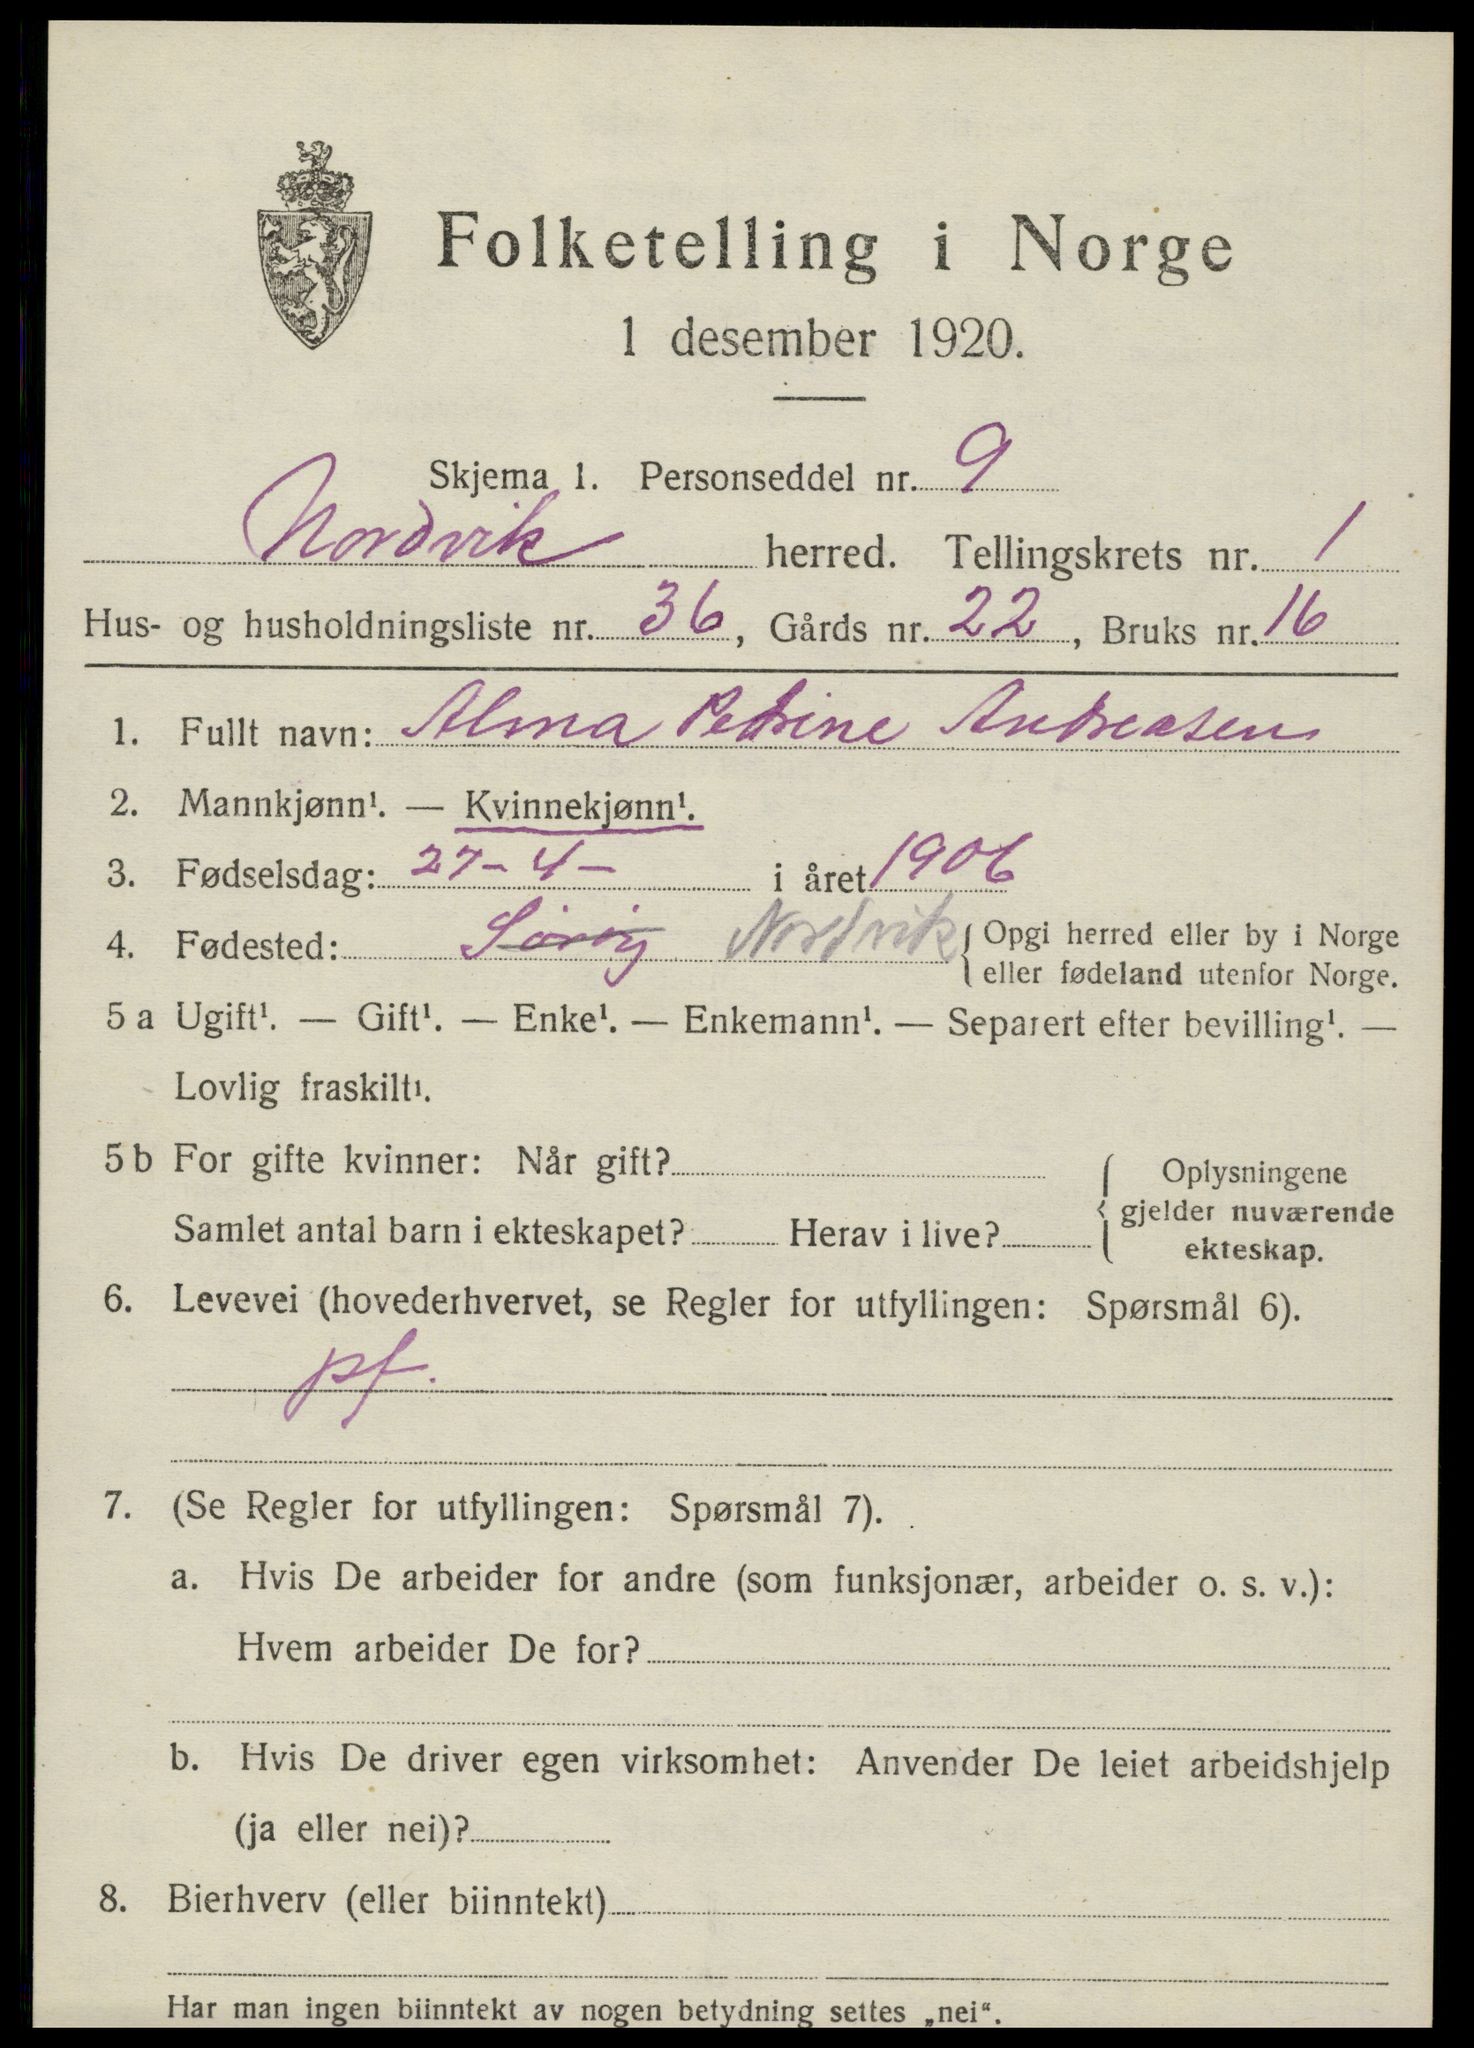 Folketelling i Norge
1 desember 1920.
Skjema 1. Personseddel nr. 9
Nordvik herred. Tellingskrets nr. 1
Hus- og husholdningsliste nr. 36, Gårds nr. 22, Bruks nr. 16
1. Fullt navn: Alma Petrine Andreasen
2. Mannkjønn¹. — Kvinnekjønn¹.
3. Fødselsdag: 27-4- i året 1906
4. Fødested: Nordvik { Opgi herred eller by i Norge
eller fødeland utenfor Norge.
5 a Ugift¹. — Gift¹. — Enke¹. — Enkemann¹. — Separert efter bevilling¹. —
Lovlig fraskilt¹.
5 b For gifte kvinner: Når gift?
Samlet antal barn i ekteskapet? Herav i live?
{ Oplysningene
gjelder nuværende
ekteskap.
6. Levevei (hovederhvervet, se Regler for utfyllingen: Spørsmål 6).
pf.
7. (Se Regler for utfyllingen: Spørsmål 7).
a. Hvis De arbeider for andre (som funksjonær, arbeider o. s. v.):
Hvem arbeider De for?
b. Hvis De driver egen virksomhet: Anvender De leiet arbeidshjelp
(ja eller nei)?
8. Bierhverv (eller biinntekt)
Har man ingen biinntekt av nogen betydning settes „nei“.